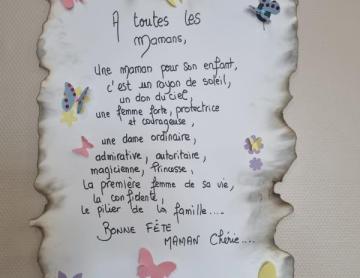 A toutes les
Mamans,
Une maman pour son enfant,
c'est un rayon de soleil,
un don du ciel,
une femme forte, protectrice
et courageuse,
une dame ordinaire,
admirative, autoritaire,
magicienne, Princesse,
la première femme de sa vie,
la confidente,
le pilier de la famille....
BONNE FÊTE
MAMAN Chérie....